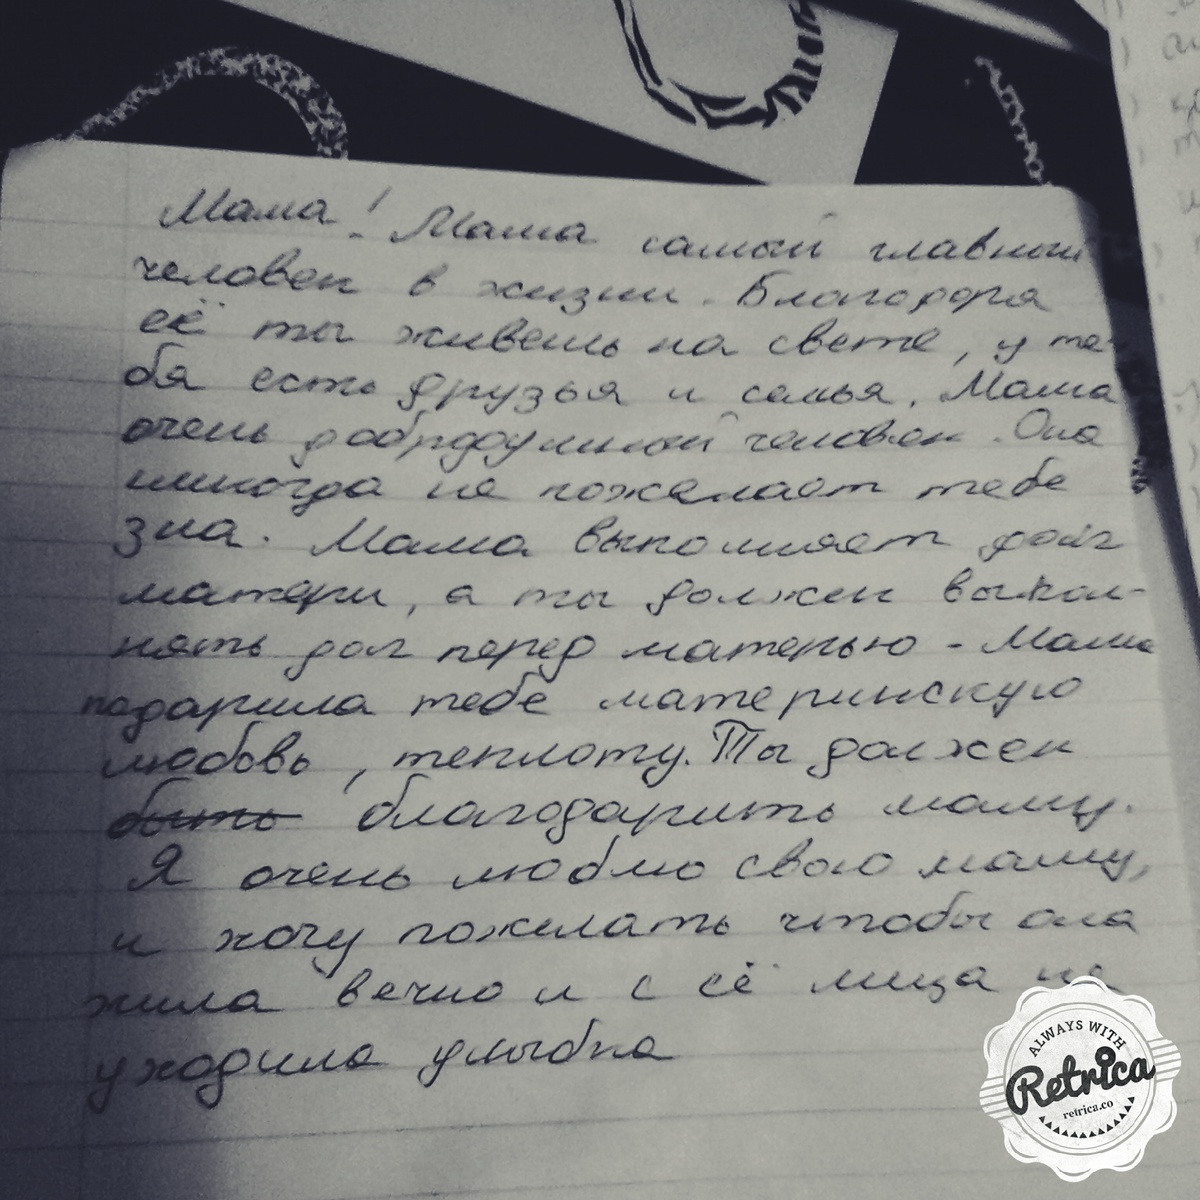 Мама! Мама самый главный
человек в жизни. Благодоря
её ты живешь на свете, у те-
бя есть друзья и семья. Мама
очень добрдоушный человек. Она
никогда не пожелает тебе
зла. Мама выполняет долг
матери, а ты должен выпол-
нять дол перед матерью - Мама
подарила тебе материнскую
любовь, теплоту. Ты должен
быть благодарить маму.
Я очень люблю свою маму,
и хочу пожелать чтобы она
жила вечно и с её лица не
уходила улыбка
ALWAYS WITH
Retrica
retrica.co